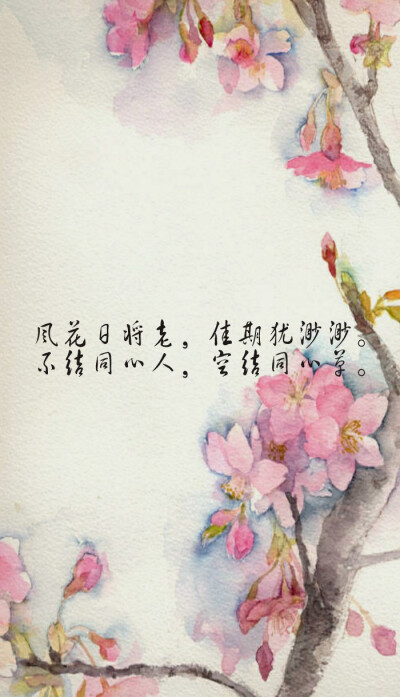 风花日将老，佳期犹渺渺。
不结同心人，空结同心草。